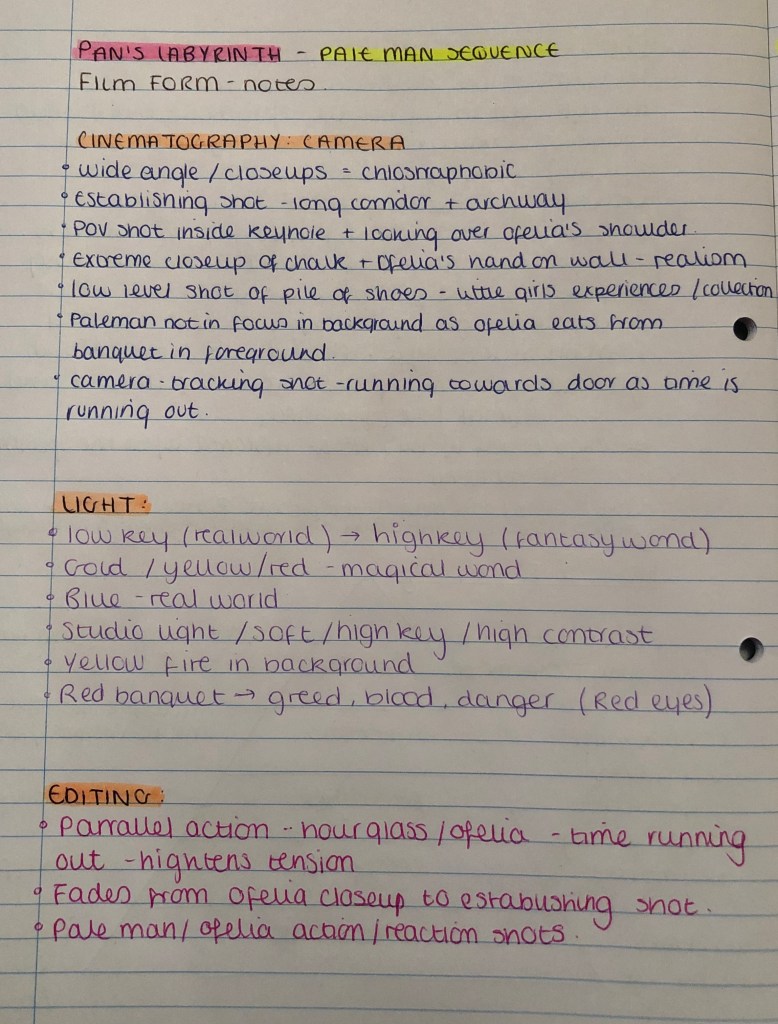 PAN'S LABYRINTH - PALE MAN SEQUENCE
FILM FORM - notes.
CINEMATOGRAPHY: CAMERA
• wide angle / closeups = chlostraphobic
• Establishing shot - long corridor + archway
• POV shot inside keyhole + looking over ofelia's shoulder.
• Extreme closeup of chalk + Ofelia's hand on wall - realism
• low level shot of pile of shoes - little girls experiences / collection
• Paleman not in focus in background as ofelia eats from
banquet in foreground.
• camera - tracking shot - running towards door as time is
running out.
LIGHT:
• low key (real world) → highkey (fantasy world)
• Gold / yellow / red - magical world
• Blue - real world
• Studio light / soft / high key / high contrast
• Yellow fire in background
• Red banquet → greed, blood, danger (Red eyes)
EDITING:
• Parrallel action - hourglass / ofelia - time running
out - hightens tension
• Fades from Ofelia closeup to establishing shot.
• Pale man / ofelia action / reaction shots.